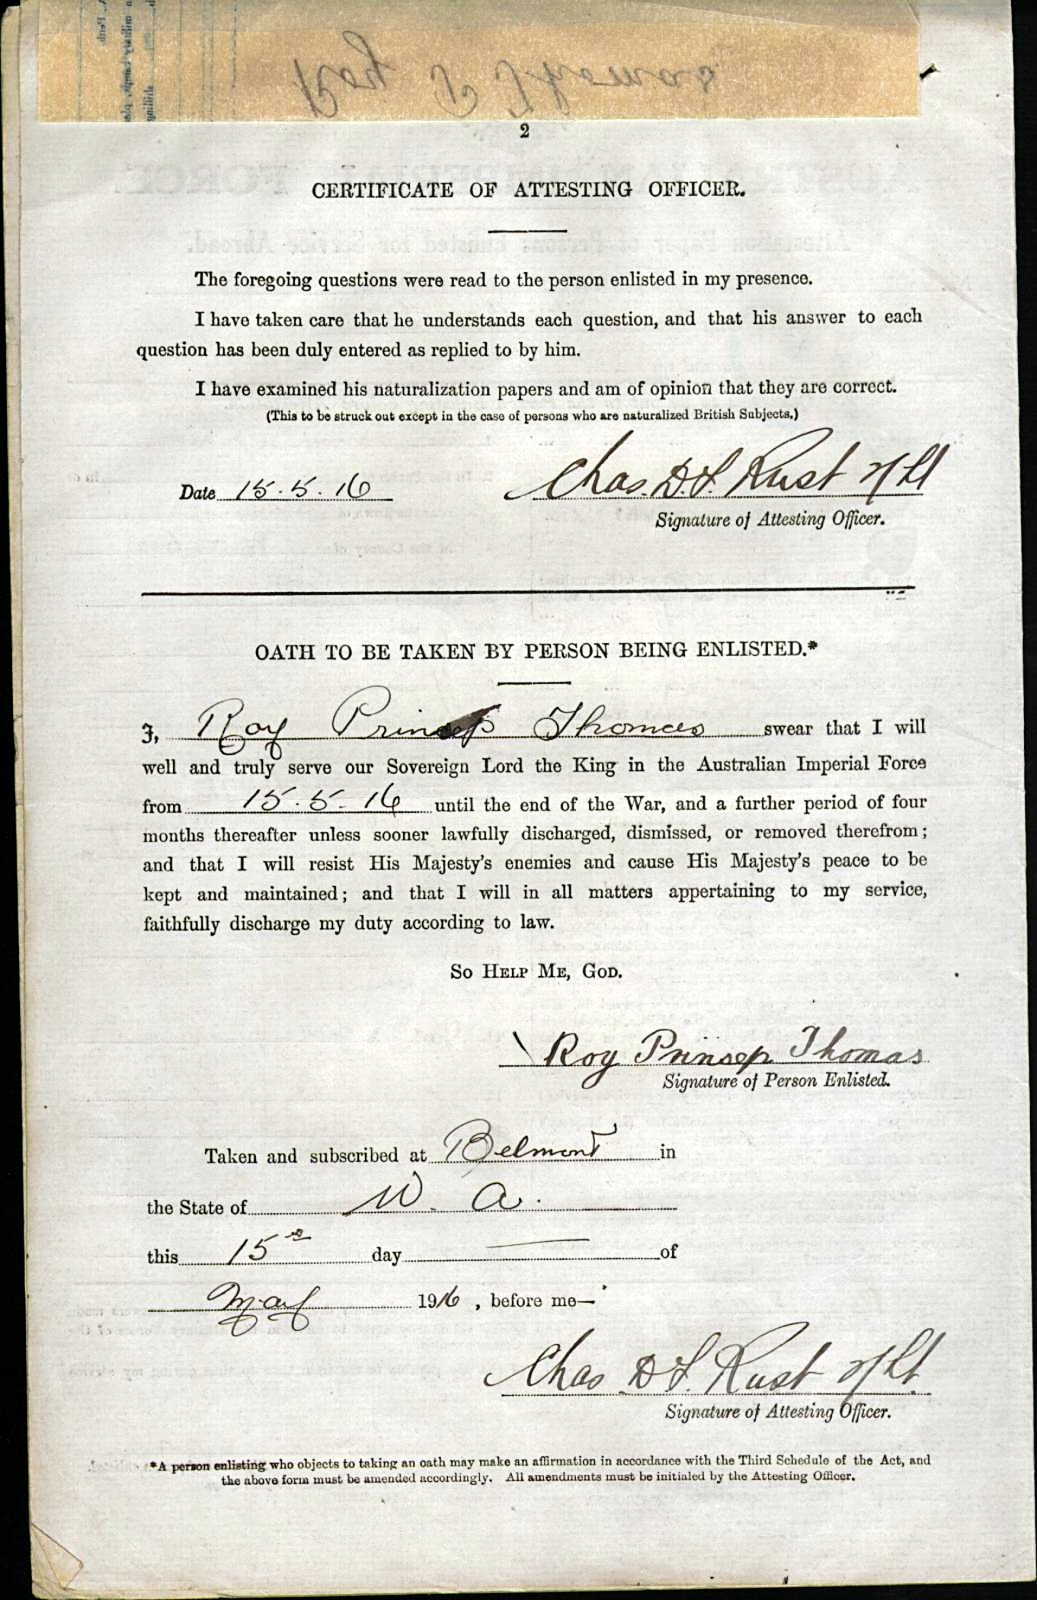 2
CERTIFICATE OF ATTESTING OFFICER.
The foregoing questions were read to the person enlisted in my presence.
I have taken care that he understands each question, and that his answer to each
question has been duly entered as replied to by him.
I have examined his naturalization papers and am of opinion that they are correct.
(This to be struck out except in the case of persons who are naturalized British Subjects.)
Date 15.5.16 Chas. D. S. Rust H/Lt
Signature of Attesting Officer.
OATH TO BE TAKEN BY PERSON BEING ENLISTED.*
I, Roy Prinsep Thomas swear that I will
well and truly serve our Sovereign Lord the King in the Australian Imperial Force
from 15.5.16 until the end of the War, and a further period of four
months thereafter unless sooner lawfully discharged, dismissed, or removed therefrom;
and that I will resist His Majesty's enemies and cause His Majesty's peace to be
kept and maintained; and that I will in all matters appertaining to my service,
faithfully discharge my duty according to law.
So Help Me, God.
Roy Prinsep Thomas
Signature of Person Enlisted.
Taken and subscribed at Belmont in
the State of W. A.
this 15th day of
May 1916, before me—
Chas D S. Rust H/Lt.
Signature of Attesting Officer.
*A person enlisting who objects to taking an oath may make an affirmation in accordance with the Third Schedule of the Act, and
the above form must be amended accordingly. All amendments must be initialed by the Attesting Officer.